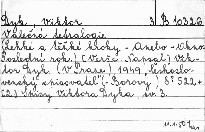 Dyk, Viktor 3 B 10326
Válečná tetralogie
Lehké a těžké kroky - Anebo - Okno -
Poslední rok. (Verše. Napsal) Vik-
tor Dyk. (V Praze) 1949, (Českoslo-
venský spisovatel) - Borový) 8° 522 +
(2) Spisy Viktora Dyka, sv. 3.